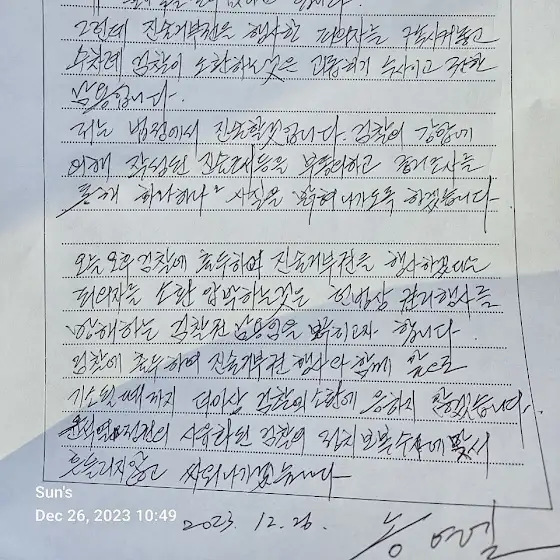 그런데 진술거부권을 행사한 피의자를 구속시켜놓고
수차례 검찰이 소환하는것은 괴롭히기 수사이고 권한
남용입니다.
저는 법정에서 진술할것입니다. 검찰의 강압에
의해 작성된 진술조서등을 부동의하고 증거조사를
통해 하나하나 사실을 밝혀 나가도록 하겠습니다.
오늘 오후 검찰에 출두하여 진술거부권을 행사하겠다는
피의자를 소환 압박하는것은 헌법상 권리행사를
방해하는 검찰권 남용임을 밝히고자 합니다.
검찰에 출두하여 진술거부권 행사와 함께 앞으로
기소될때까지 더이상 검찰의 소환에 응하지 않겠습니다.
윤석열 정권의 사유화된 검찰의 정치보복수사에 맞서
흔들리지않고 싸워나가겠습니다.
2023. 12. 26. 송영길
Sun's
Dec 26, 2023 10:49